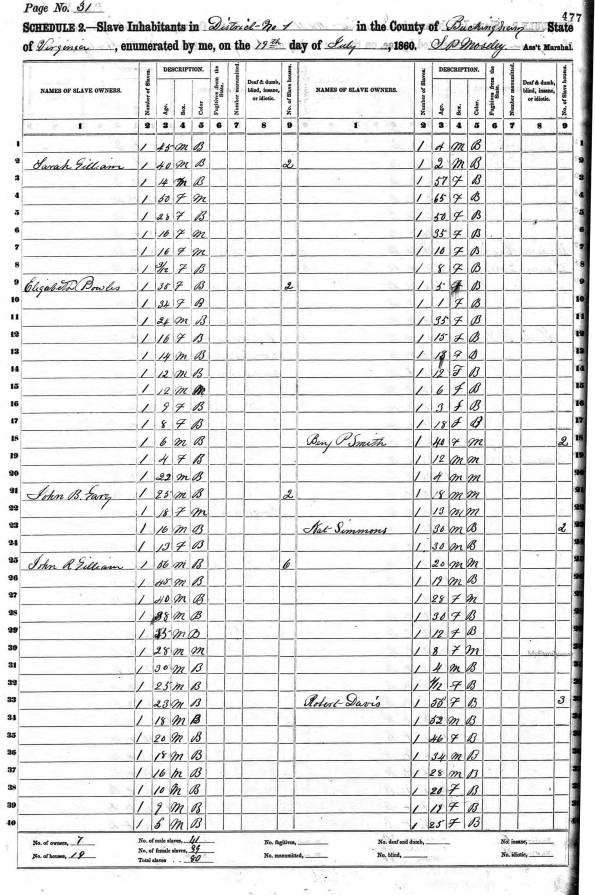 Page No. 31
477
SCHEDULE 2.—Slave Inhabitants in District No 1 in the County of Buckingham State
of Virginia, enumerated by me, on the 19th day of July, 1860. Ass't Marshal.
NAMES OF SLAVE OWNERS. Number of Slaves. DESCRIPTION. Age. Sex. Color. Fugitives from the State. Number manumitted. Deaf & dumb, blind, insane, or idiotic. No. of Slave houses. NAMES OF SLAVE OWNERS. Number of Slaves. DESCRIPTION. Age. Sex. Color. Fugitives from the State. Number manumitted. Deaf & dumb, blind, insane, or idiotic. No. of Slave houses.
1 2 3 4 5 6 7 8 9 1 2 3 4 5 6 7 8 9
1 1 45 M B 1 4 M B 1
2 Sarah Gilliam 1 40 M B 2 1 2 M B 2
3 1 14 M B 1 57 F B 3
4 1 50 F M 1 65 F B 4
5 1 23 F B 1 50 F B 5
6 1 16 F M 1 35 F B 6
7 1 16 F M 1 10 F B 7
8 1 F B 1 8 F B 8
9 Elizabeth Bowles 1 35 F B 2 1 5 F B 9
10 1 34 F B 1 1 F B 10
11 1 24 M B 1 35 F B 11
12 1 16 F B 1 15 F B 12
13 1 14 M B 1 13 F B 13
14 1 12 M B 1 12 F B 14
15 1 12 M M 1 6 F B 15
16 1 9 F B 1 3 F B 16
17 1 8 F B 1 18 F B 17
18 1 6 M B Benj P Smith 1 40 F M 2 18
19 1 4 F B 1 12 M M 19
20 1 22 M B 1 4 M M 20
21 John B. 1 25 M B 2 1 18 M M 21
22 1 18 F M 1 13 M M 22
23 1 16 M B Nat Simmons 1 30 M B 2 23
24 1 13 F B 1 30 M B 24
25 John R Gilliam 1 56 M B 6 1 20 M M 25
26 1 45 M B 1 19 M B 26
27 1 40 M B 1 28 F M 27
28 1 38 M B 1 30 F B 28
29 1 35 M B 1 12 F B 29
30 1 28 M M 1 8 F M 30
31 1 30 M B 1 4 M B 31
32 1 25 M B 1 F B 32
33 1 23 M B Robert Davis 1 55 F B 3 33
34 1 18 M B 1 52 M B 34
35 1 20 M B 1 46 F B 35
36 1 18 M B 1 34 M B 36
37 1 16 M B 1 28 M B 37
38 1 10 M B 1 20 F B 38
39 1 9 M B 1 19 F B 39
40 1 5 M B 1 25 F B 40
No. of owners, 7 No. of male slaves, 41 No. fugitives, No. deaf and dumb, No. insane,
No. of houses, 19 No. of female slaves, 39 No. manumitted, No. blind, No. idiotic,
Total slaves 80